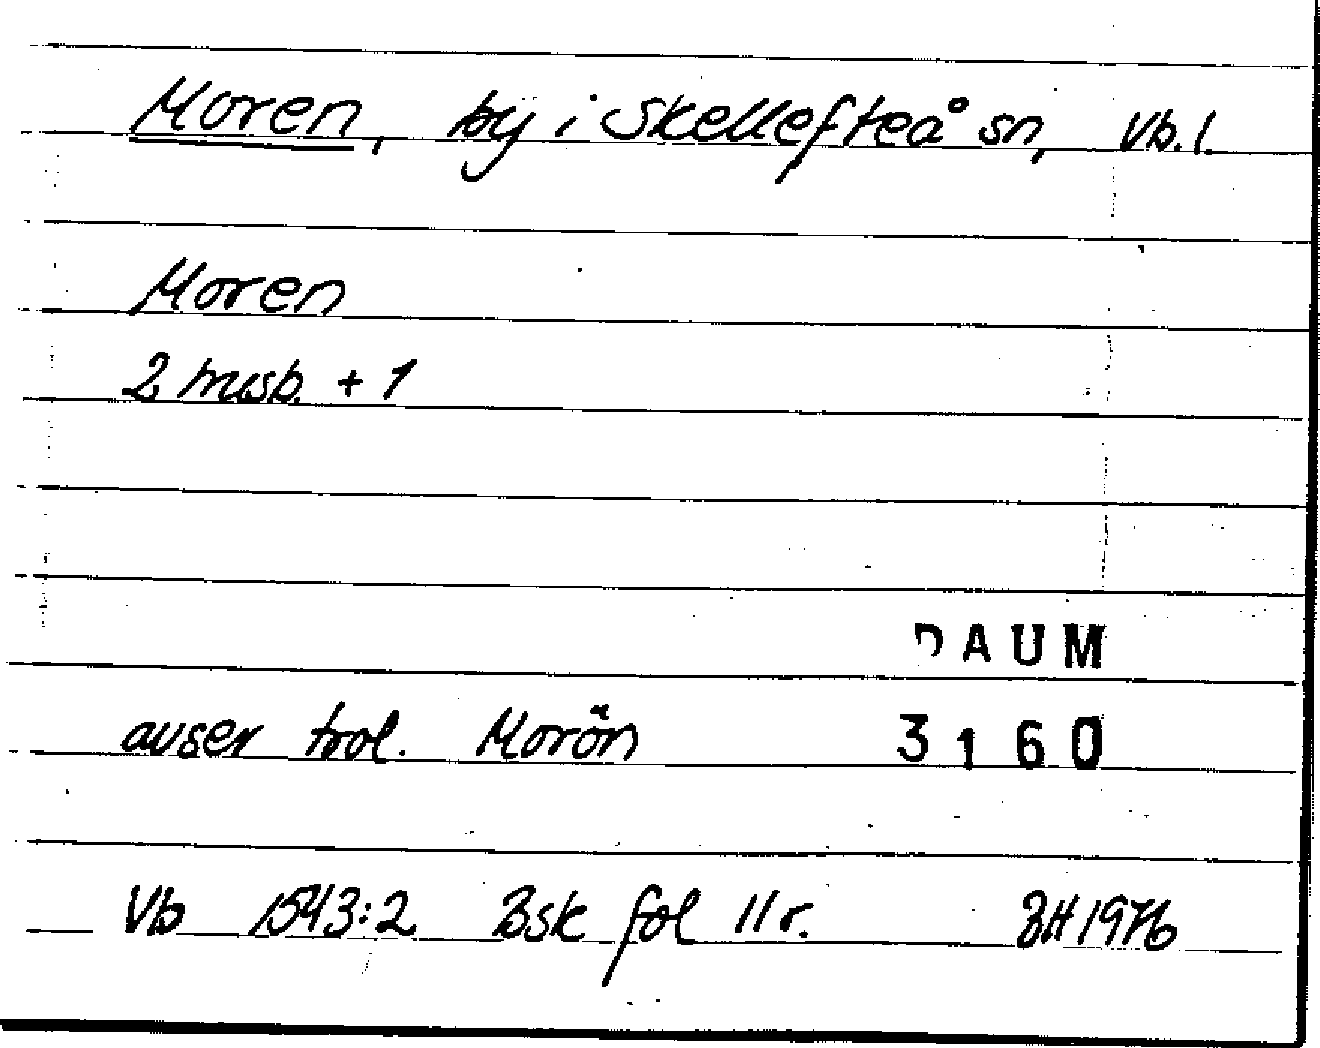 Moren, by i Skellefteå sn, Vb. l.
Moren
2 husb. + 1
DAUM
avser trol. Morön 3160
Vb 1543:2 Bsk fol 11 r. BH 1976